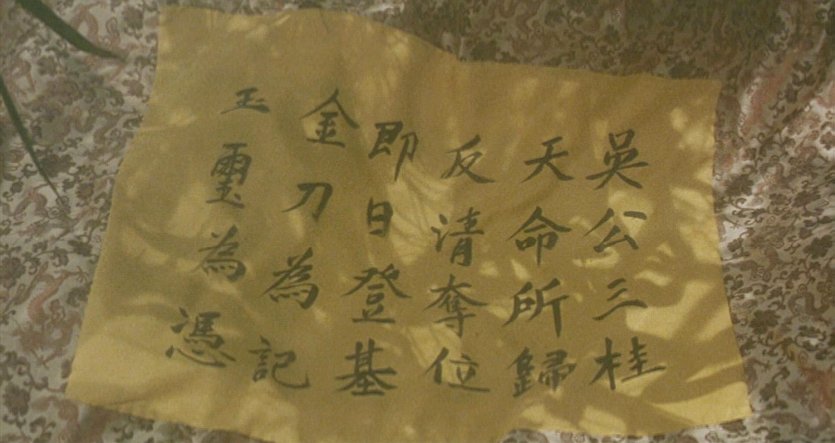 吳公三桂
天命所歸
反清奪位
即日登基
金刀為記
玉璽為憑